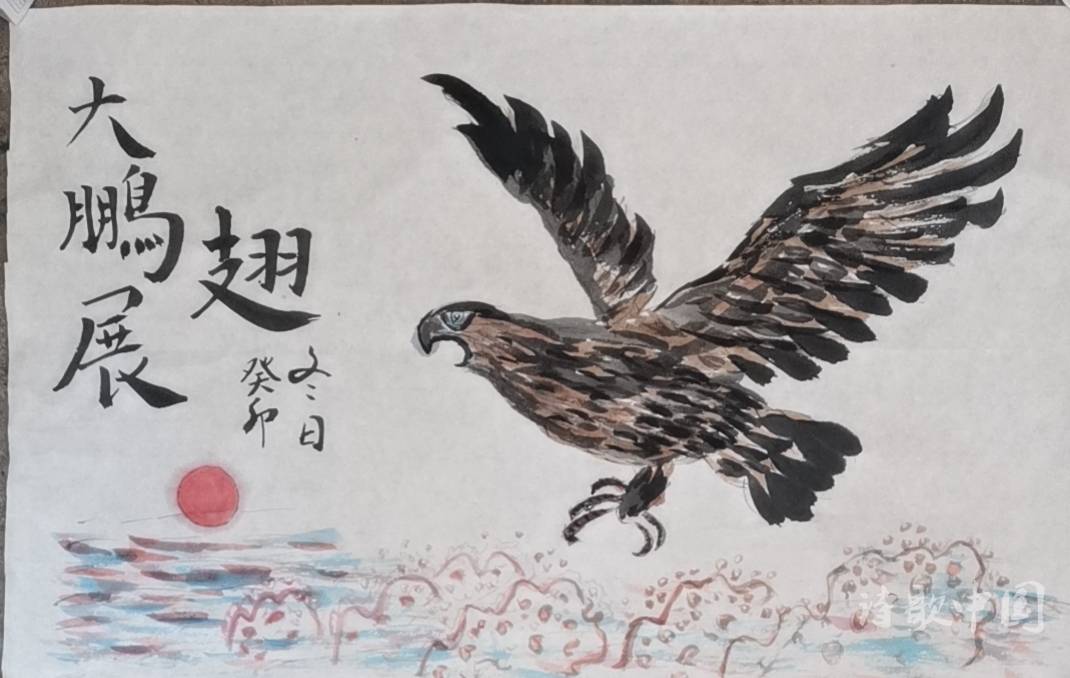 大鹏展
翅
癸卯
冬日
诗歌中国